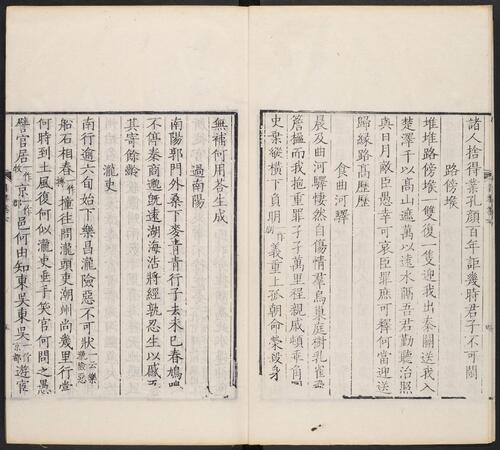 諸人捨得業孔顏百年詎幾時君子不可閒
路傍堠
堆堆路傍堠一雙復一隻迎我出秦關送我入
楚澤千以高山遮萬以遠水隔吾君勤聽治照
與日月敵臣愚幸可哀臣罪庶可釋何當迎送
歸緣路高歷歷
食曲河驛
晨及曲河驛悽然自傷情群烏巢庭樹乳雀飛
簷楹而我抱重罪孑孑萬里程親戚頓乖角圖
史棄縱橫下負明一作朋義重上孤朝命榮殺身
無補何用荅生成
過南陽
南陽郭門外桑下麥青青行子去未已春鳩鳴
不停秦商邈既遠湖海浩將經孰忍生以慼吾
其寄餘齡
瀧吏
南行逾六旬始下樂昌瀧險惡不可狀一云樂瀧險惡
船石相舂一作撞往問瀧頭吏潮州尚幾里行當
何時到土風復何似瀧吏垂手笑官何問之愚
譬官居一作牧京一作邑何由知東吳東吳一作京都遊宦